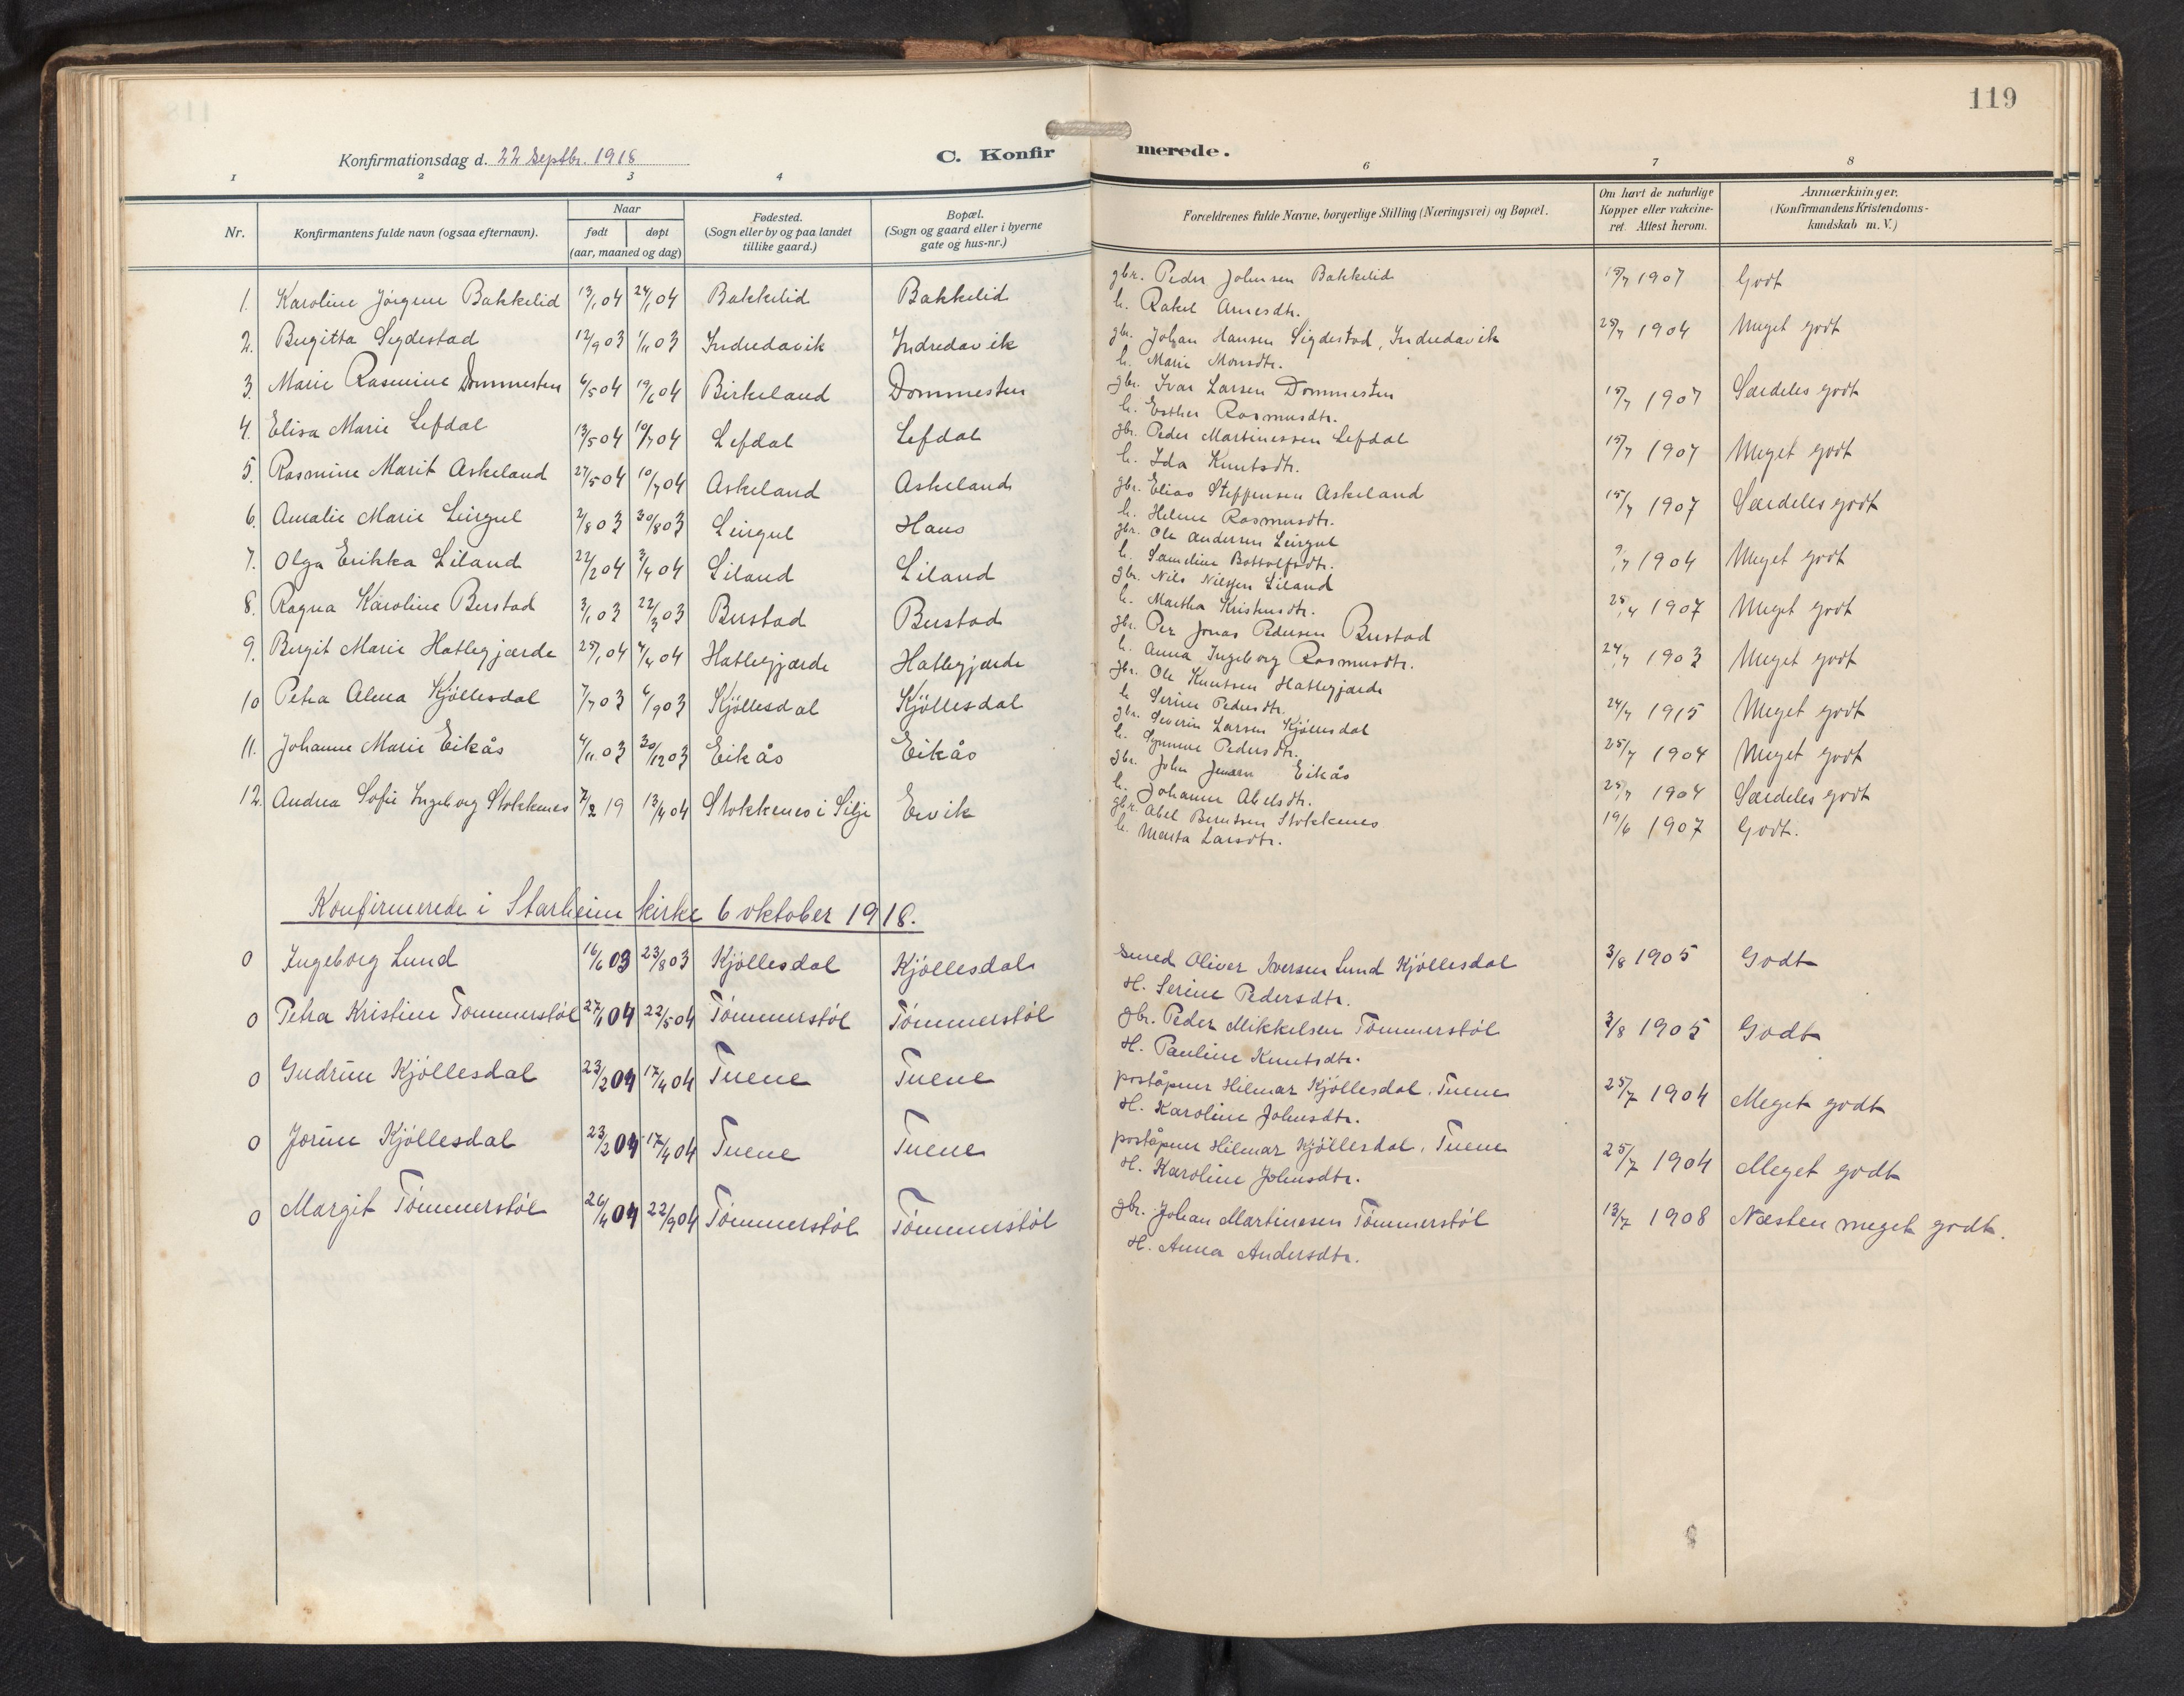 119
Konfirmationsdag d. 22 Septbr. 1918
C. Konfirmerede.
1 2 3 4 6 7 8
Nr. Konfirmantens fulde navn (ogsaa efternavn). Naar født døpt (aar, maaned og dag) Fødested. (Sogn eller by og paa landet tillike gaard.) Bopæl. (Sogn og gaard eller i byerne gate og hus-nr.) Forældrenes fulde Navne, borgerlige Stilling (Næringsvei) og Bopæl. Om havt de naturlige Kopper eller vakcineret. Attest herom. Anmærkninger. (Konfirmandens Kristendomskundskab m. V.)
1. Karoline Jörgine Bakkelid 13/1 04 24/1 04 Bakkelid Bakkelid gbr. Peder Johnsen Bakkelid 15/7 1907 Godt
h. Rakel Arnesdtr.
2. Birgitta Sigdestad 12/9 03 1/11 03 Indredavik Indredavik gbr. Johan Hansen Sigdestad, Indredavik 25/7 1904 Meget godt
h. Marie Monsdtr.
3. Marie Rasmine Dommesten 6/5 04 19/6 04 Birkeland Dommesten gbr. Ivar Larsen Dommesten 15/7 1907 Særdeles godt
h. Esther Rasmusdtr.
4. Elisa Marie Lefdal 13/5 04 10/7 04 Lefdal Lefdal gbr. Peder Martinessen Lefdal 15/7 1907 Meget godt
h. Ida Knutsdtr.
5. Rasmine Marit Askeland 27/5 04 10/7 04 Askeland Askeland gbr. Elias Steffensen Askeland 15/7 1907 Særdeles godt
h. Helene Rasmusdtr.
6. Amalie Marie Leirgul 2/8 03 30/8 03 Leirgul Haus gbr. Ole Andersen Leirgul 1904 Meget godt
h. Sameline Bottolfsdtr.
7. Olga Erikka Liland 22/2 04 3/4 04 Liland Liland gbr. Nils Nilssen Liland 1907 Meget godt
h. Martha Kristensdtr.
8. Ragna Karoline Berstad 3/1 03 22/3 03 Berstad Berstad gbr. Per Jonas Pedersen Berstad 1903 Meget godt
h. Anna Ingeborg Rasmusdtr.
9. Bergit Marie Hatlegjærde 25/1 04 4/4 04 Hatlegjærde Hatlegjærde gbr. Ole Knutsen Hatlegjærde 24/4 1915 Meget godt
h. Serine Pedersdtr.
10 Petra Alma Kjöllesdal 7/7 03 6/9 03 Kjöllesdal Kjöllesdal gbr. Severin Larsen Kjöllesdal 25/7 1904 Meget godt
h. Synneve Pedersdtr.
11. Johanne Marie Eikås 4/11 03 30/12 03 Eikås Eikås gbr. John Jensen Eikås 25/7 1904 Særdeles godt
h. Johanne Abelsdtr.
12. Andrea Sofie Ingeborg Stokkenes 7/2 19 13/4 04 Stokkenes i Silje Ervik gbr. Abel Berntsen Stokkenes 19/6 1907 Godt.
h. Marta Larsdtr.
Konfirmerede i Starheim kirke 6 oktober 1918.
0 Ingeborg Lund 16/6 03 23/8 03 Kjöllesdal Kjöllesdal Smed Oliver Iversen Lund Kjöllesdal 3/8 1905 Godt
H. Serine Pedersdtr.
0 Petra Kristine Tömmerstöl 27/1 04 22/5 04 Tömmerstöl Tömmerstöl gbr. Peder Mikkelsen Tömmerstöl 3/8 1905 Godt
H. Pauline Knutsdtr.
0 Gudrun Kjöllesdal 23/2 04 17/4 04 Tuene Tuene poståpner Hilmar Kjöllesdal, Tuene 25/7 1904 Meget godt
H. Karoline Johnsdtr.
0 Jorun Kjöllesdal 23/2 04 17/4 04 Tuene Tuene poståpner Hilmar Kjöllesdal, Tuene 25/7 1904 Meget godt
H. Karoline Johnsdtr.
0 Margit Tömmerstöl 26/4 04 22/9 04 Tömmerstöl Tömmerstöl gbr. Johan Martinesen Tömmerstöl 13/7 1908 Næsten meget godt.
H. Anna Andersdtr.